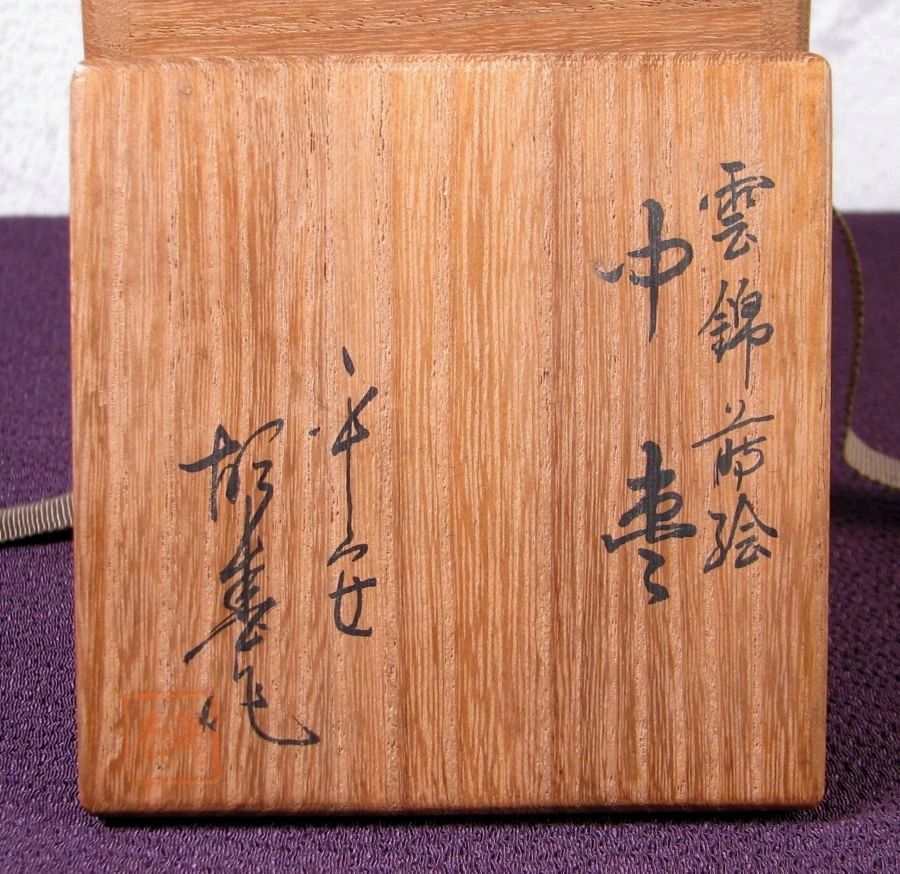 雲錦蒔絵
中棗
平安
作